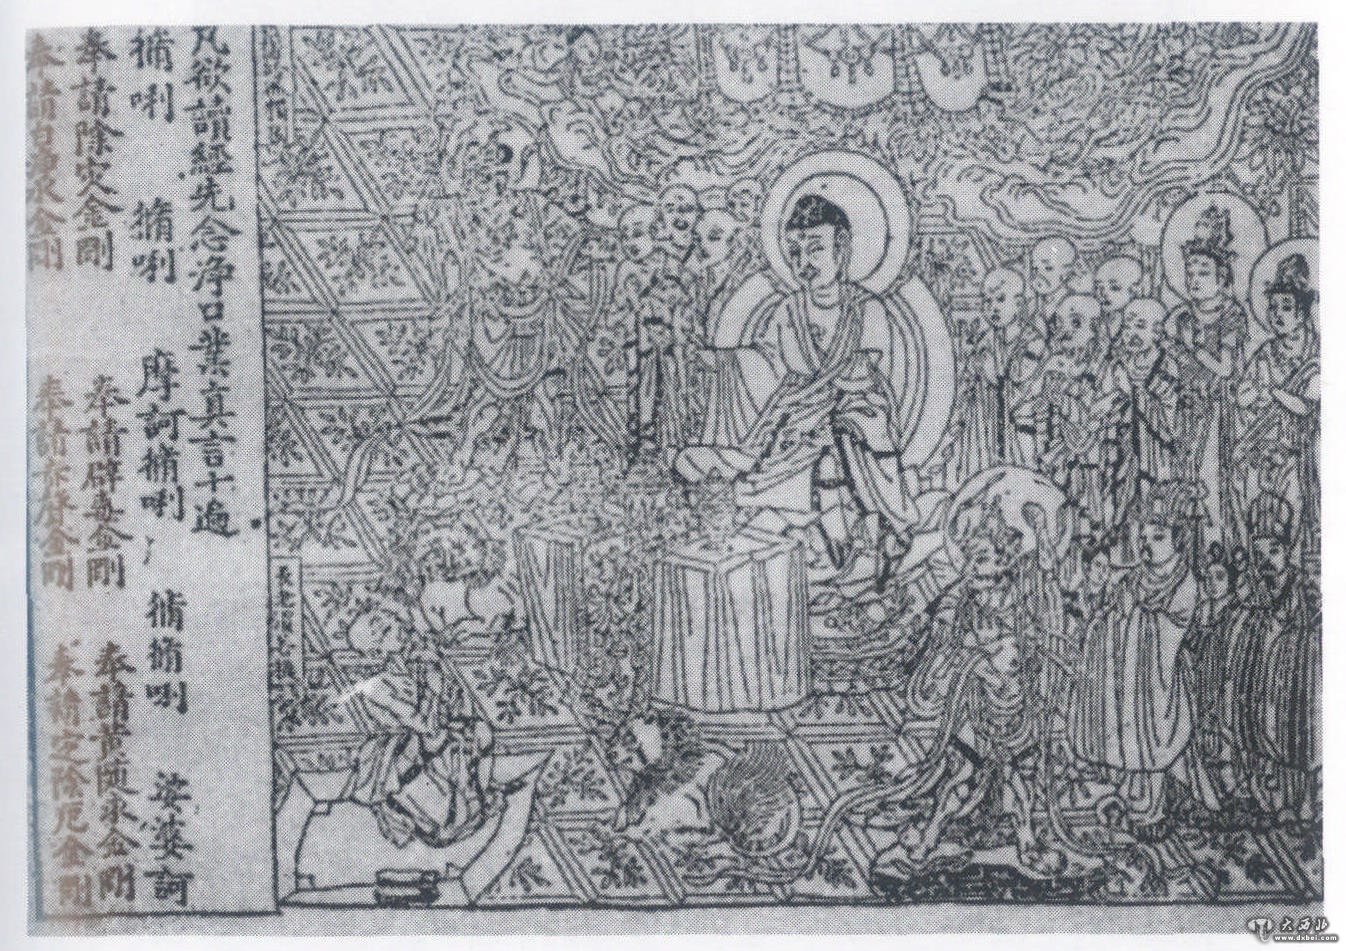 凡欲讀經先念淨口業真言十遍
脩唎 脩唎 摩訶脩唎 脩脩唎 娑婆訶
奉請除災金剛 奉請辟毒金剛 奉請黃隨求金剛
奉請白淨水金剛 奉請赤聲金剛 奉請定除厄金剛
長老須菩提
大西北
www.dxbei.com